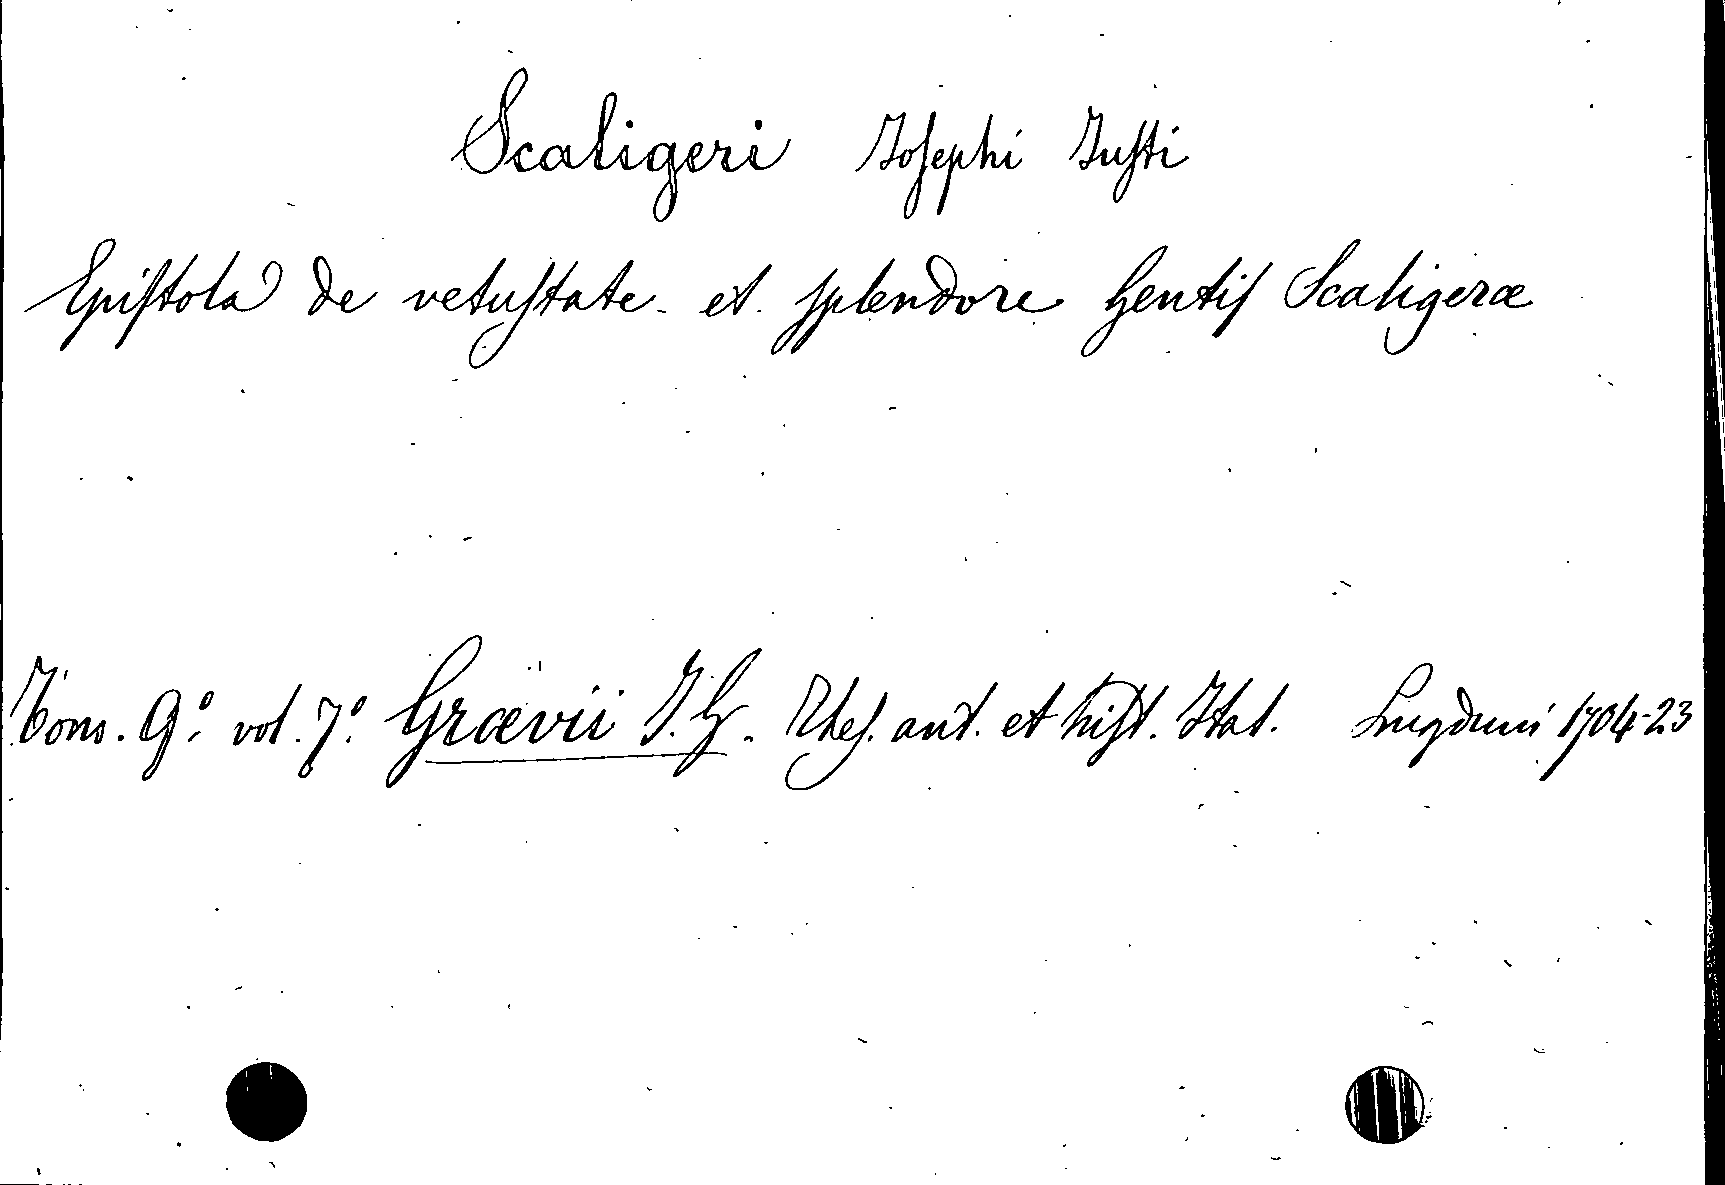 Scaligeri Josephi Justi
Epistola de vetustate et splendore Gentis Scaligeræ
Tom. 9.º vol. 7.º Grævii J. G. Thes. ant. et hist. Ital. Lugduni 1704-23